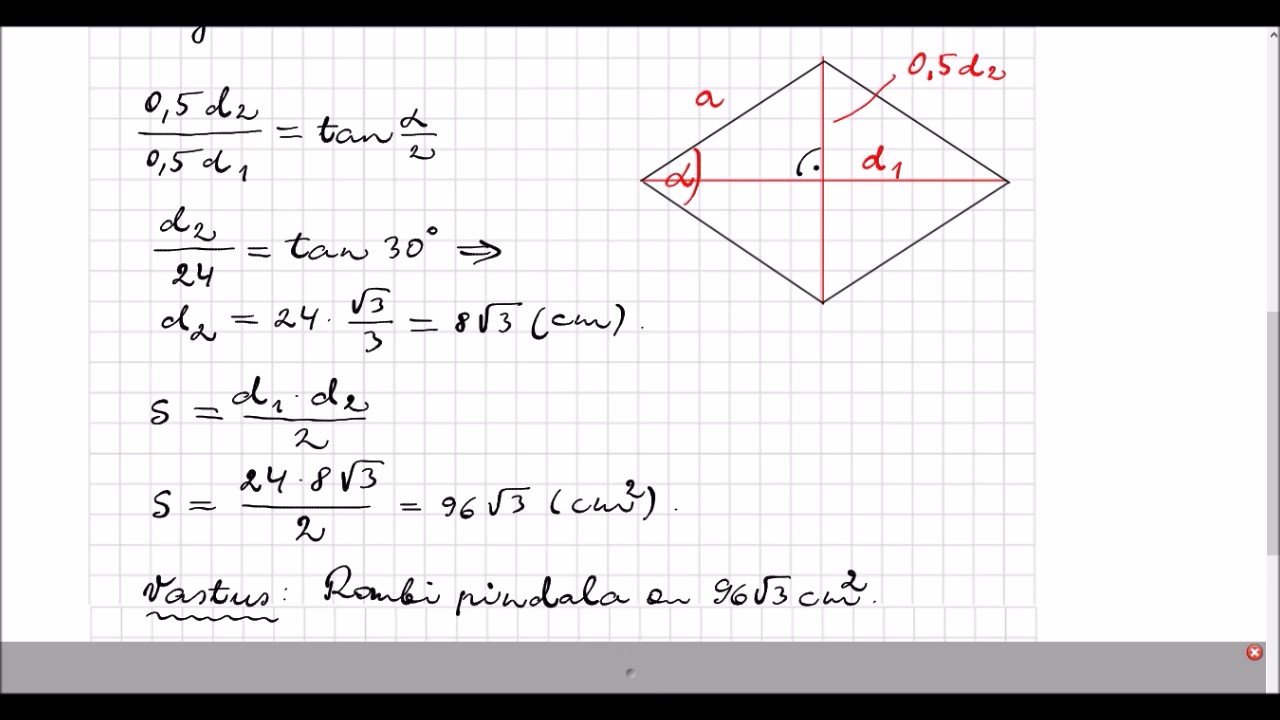 0,5d₂/0,5d₁ = tan α/2
d₂/24 = tan 30° ⇒
d₂ = 24 · √3/3 = 8√3 (cm).
S = d₁ · d₂/2
S = 24 · 8√3/2 = 96√3 (cm²).
Vastus: Rombi pindala on 96√3 cm².
a
0,5d₂
α
d₁